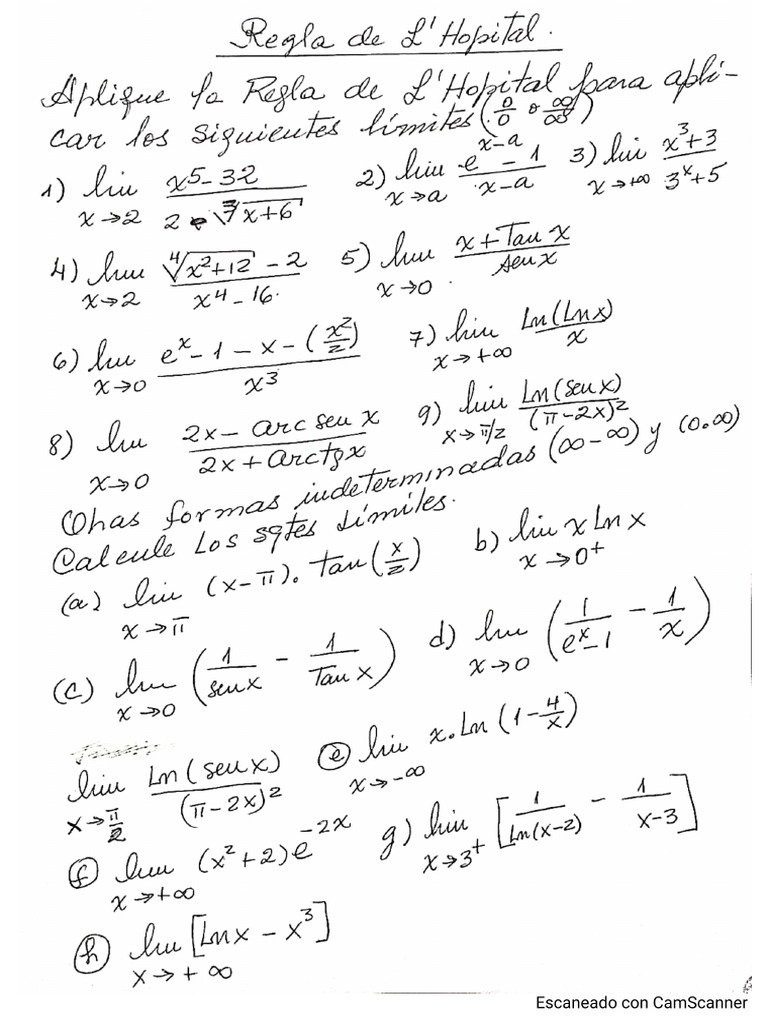 Regla de L'Hopital.
Aplique la Regla de L'Hopital para apli-
car los siguientes límites (0/0 o ∞/∞)
1) lim x→2 (x^5 - 32)/(2 - ∛(x+6)) 2) lim x→a (e^(x-a) - 1)/(x-a) 3) lim x→+∞ (x^3+3)/(3^x+5)
4) lim x→2 (∜(x^2+12) - 2)/(x^4 - 16) 5) lim x→0 (x + Tan x)/(sen x)
6) lim x→0 (e^x - 1 - x - (x^2/2))/(x^3) 7) lim x→+∞ Ln(Lnx)/x
8) lim x→0 (2x - arc sen x)/(2x + arctg x) 9) lim x→π/2 Ln(sen x)/(π-2x)^2
Otras formas indeterminadas (∞-∞) y (0.∞)
Calcule Los sgtes Límites.
(a) lim x→π (x-π). tan(x/2) b) lim x→0+ x Ln x
(c) lim x→0 (1/senx - 1/Tan x) d) lim x→0 (1/(e^x-1) - 1/x)
lim x→π/2 Ln(sen x)/(π-2x)^2 (e) lim x→-∞ x.Ln(1-4/x)
(f) lim x→+∞ (x^2+2)e^(-2x) g) lim x→3+ [1/Ln(x-2) - 1/(x-3)]
(h) lim x→+∞ [Lnx - x^3]
Escaneado con CamScanner